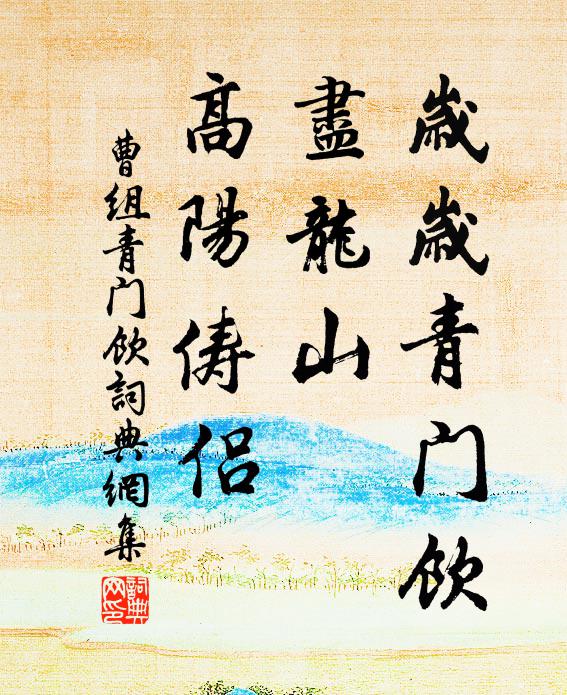 歲歲青门飲
盡龍山
高陽儔侶
曹组青门飲詞典網集
詞典网印